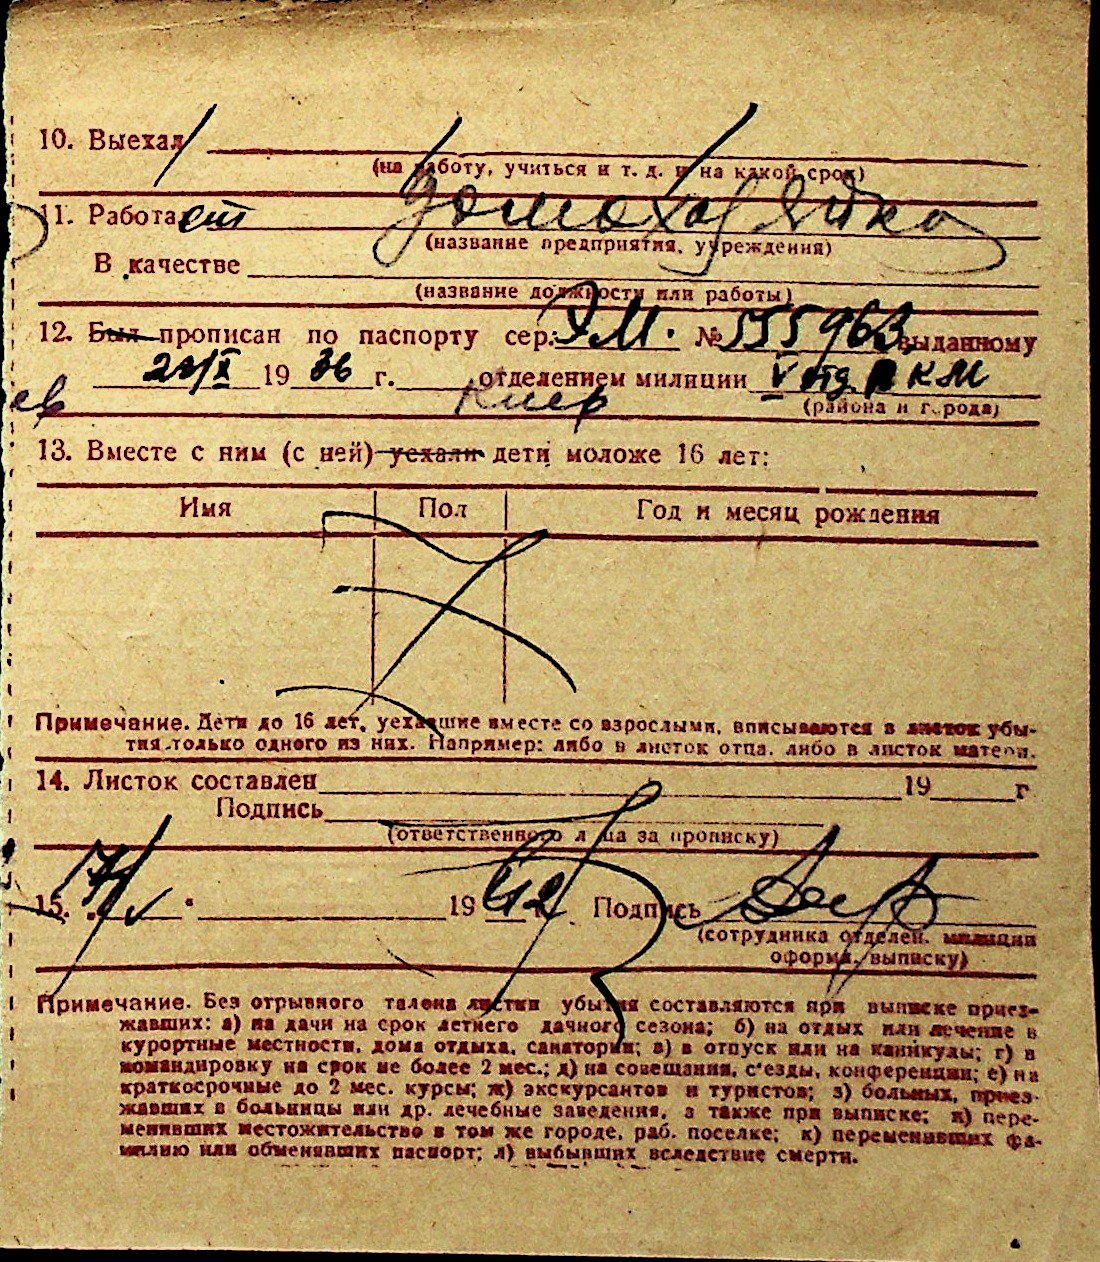 10. Выехал
(на работу, учиться и т. д. и на какой срок)
11. Работает домохозяйка
(название предприятия, учреждения)
В качестве
(название должности или работы)
12. Был прописан по паспорту сер. ЭМ. № 555963 выданному
1936 г. отделением милиции V отд. РКМ
Киев
(района и города)
13. Вместе с ним (с ней) уехали дети моложе 16 лет:
Имя Пол Год и месяц рождения
Примечание. Дети до 16 лет, уехавшие вместе со взрослыми, вписываются в листок убы-
тия только одного из них. Например: либо в листок отца, либо в листок матери.
14. Листок составлен 19 г
Подпись
(ответственного лица за прописку)
15. 1942 г. Подпись
(сотрудника отделен. милиции
оформ. выписку)
Примечание. Без отрывного талона листки убытия составляются при выписке приез-
жавших: а) на дачи на срок летнего дачного сезона; б) на отдых или лечение в
курортные местности, дома отдыха, санатории; в) в отпуск или на каникулы; г) в
командировку на срок не более 2 мес.; д) на совещания, с'езды, конференции; е) на
краткосрочные до 2 мес. курсы; ж) экскурсантов и туристов; з) больных, приез-
жавших в больницы или др. лечебные заведения, а также при выписке; и) пере-
менивших местожительство в том же городе, раб. поселке; к) переменивших фа-
милию или обменявших паспорт; л) выбывших вследствие смерти.